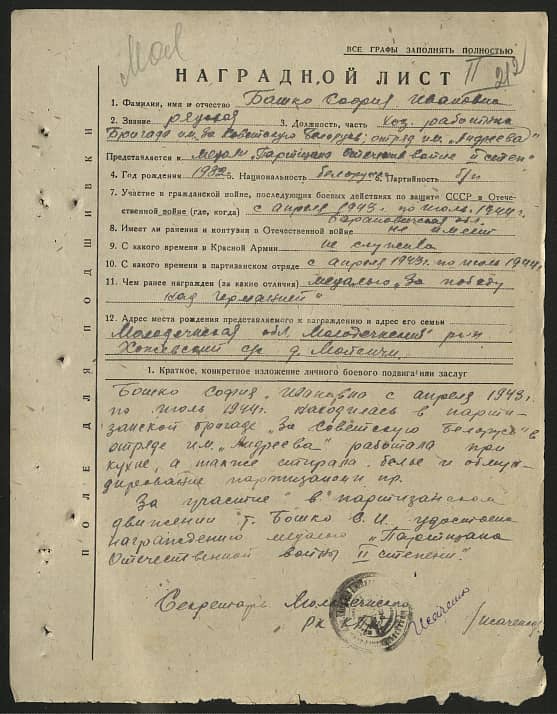 Мол
ВСЕ ГРАФЫ ЗАПОЛНЯТЬ ПОЛНОСТЬЮ
II 212
НАГРАДНОЙ ЛИСТ
1. Фамилия, имя и отчество Бошко София Ивановна
2. Звание рядовая 3. Должность, часть хоз. работник
Бригада им. За Советскую Беларусь, отряд им. „Андреева"
Представляется к медали „Партизана Отечествен войне II степ"
4. Год рождения 5. Национальность белоруска 6. Партийность б/п
7. Участие в гражданской войне, последующих боевых действиях по защите СССР в Отече-
ственной войне (где, когда) с апреля 1943г. по июль 1944г.
Барановичская обл.
8. Имеет ли ранения и контузии в Отечественной войне не имеет
9. С какого времени в Красной Армии не служила
10. С какого времени в партизанском отряде с апреля 1943г. по июль 1944г.
11. Чем ранее награжден (за какие отличия) медалью „За победу
над Германией"
12. Адрес места рождения представляемого к награждению и адрес его семьи
Молодечнская обл. Молодечнский р-н
Хожевский с/с д.
1. Краткое, конкретное изложение личного боевого подвига или заслуг
Бошко София Ивановна с апреля 1943г.
по июль 1944г. находилась в парти-
занской бригаде „За Советскую Беларусь" в
отряде им. „Андреева" работала при
кухне, а также стирала белье и обмун-
дирование партизанам и пр.
За участие в партизанском
движении т. Бошко С.И. удостоена
награждению медалью „Партизана
Отечественной войны II степени".
Секретарь Молодечнского
РК КП/б/Б Исаченко /Исаченко/
ПОЛЕ ДЛЯ ПОДШИВКИ